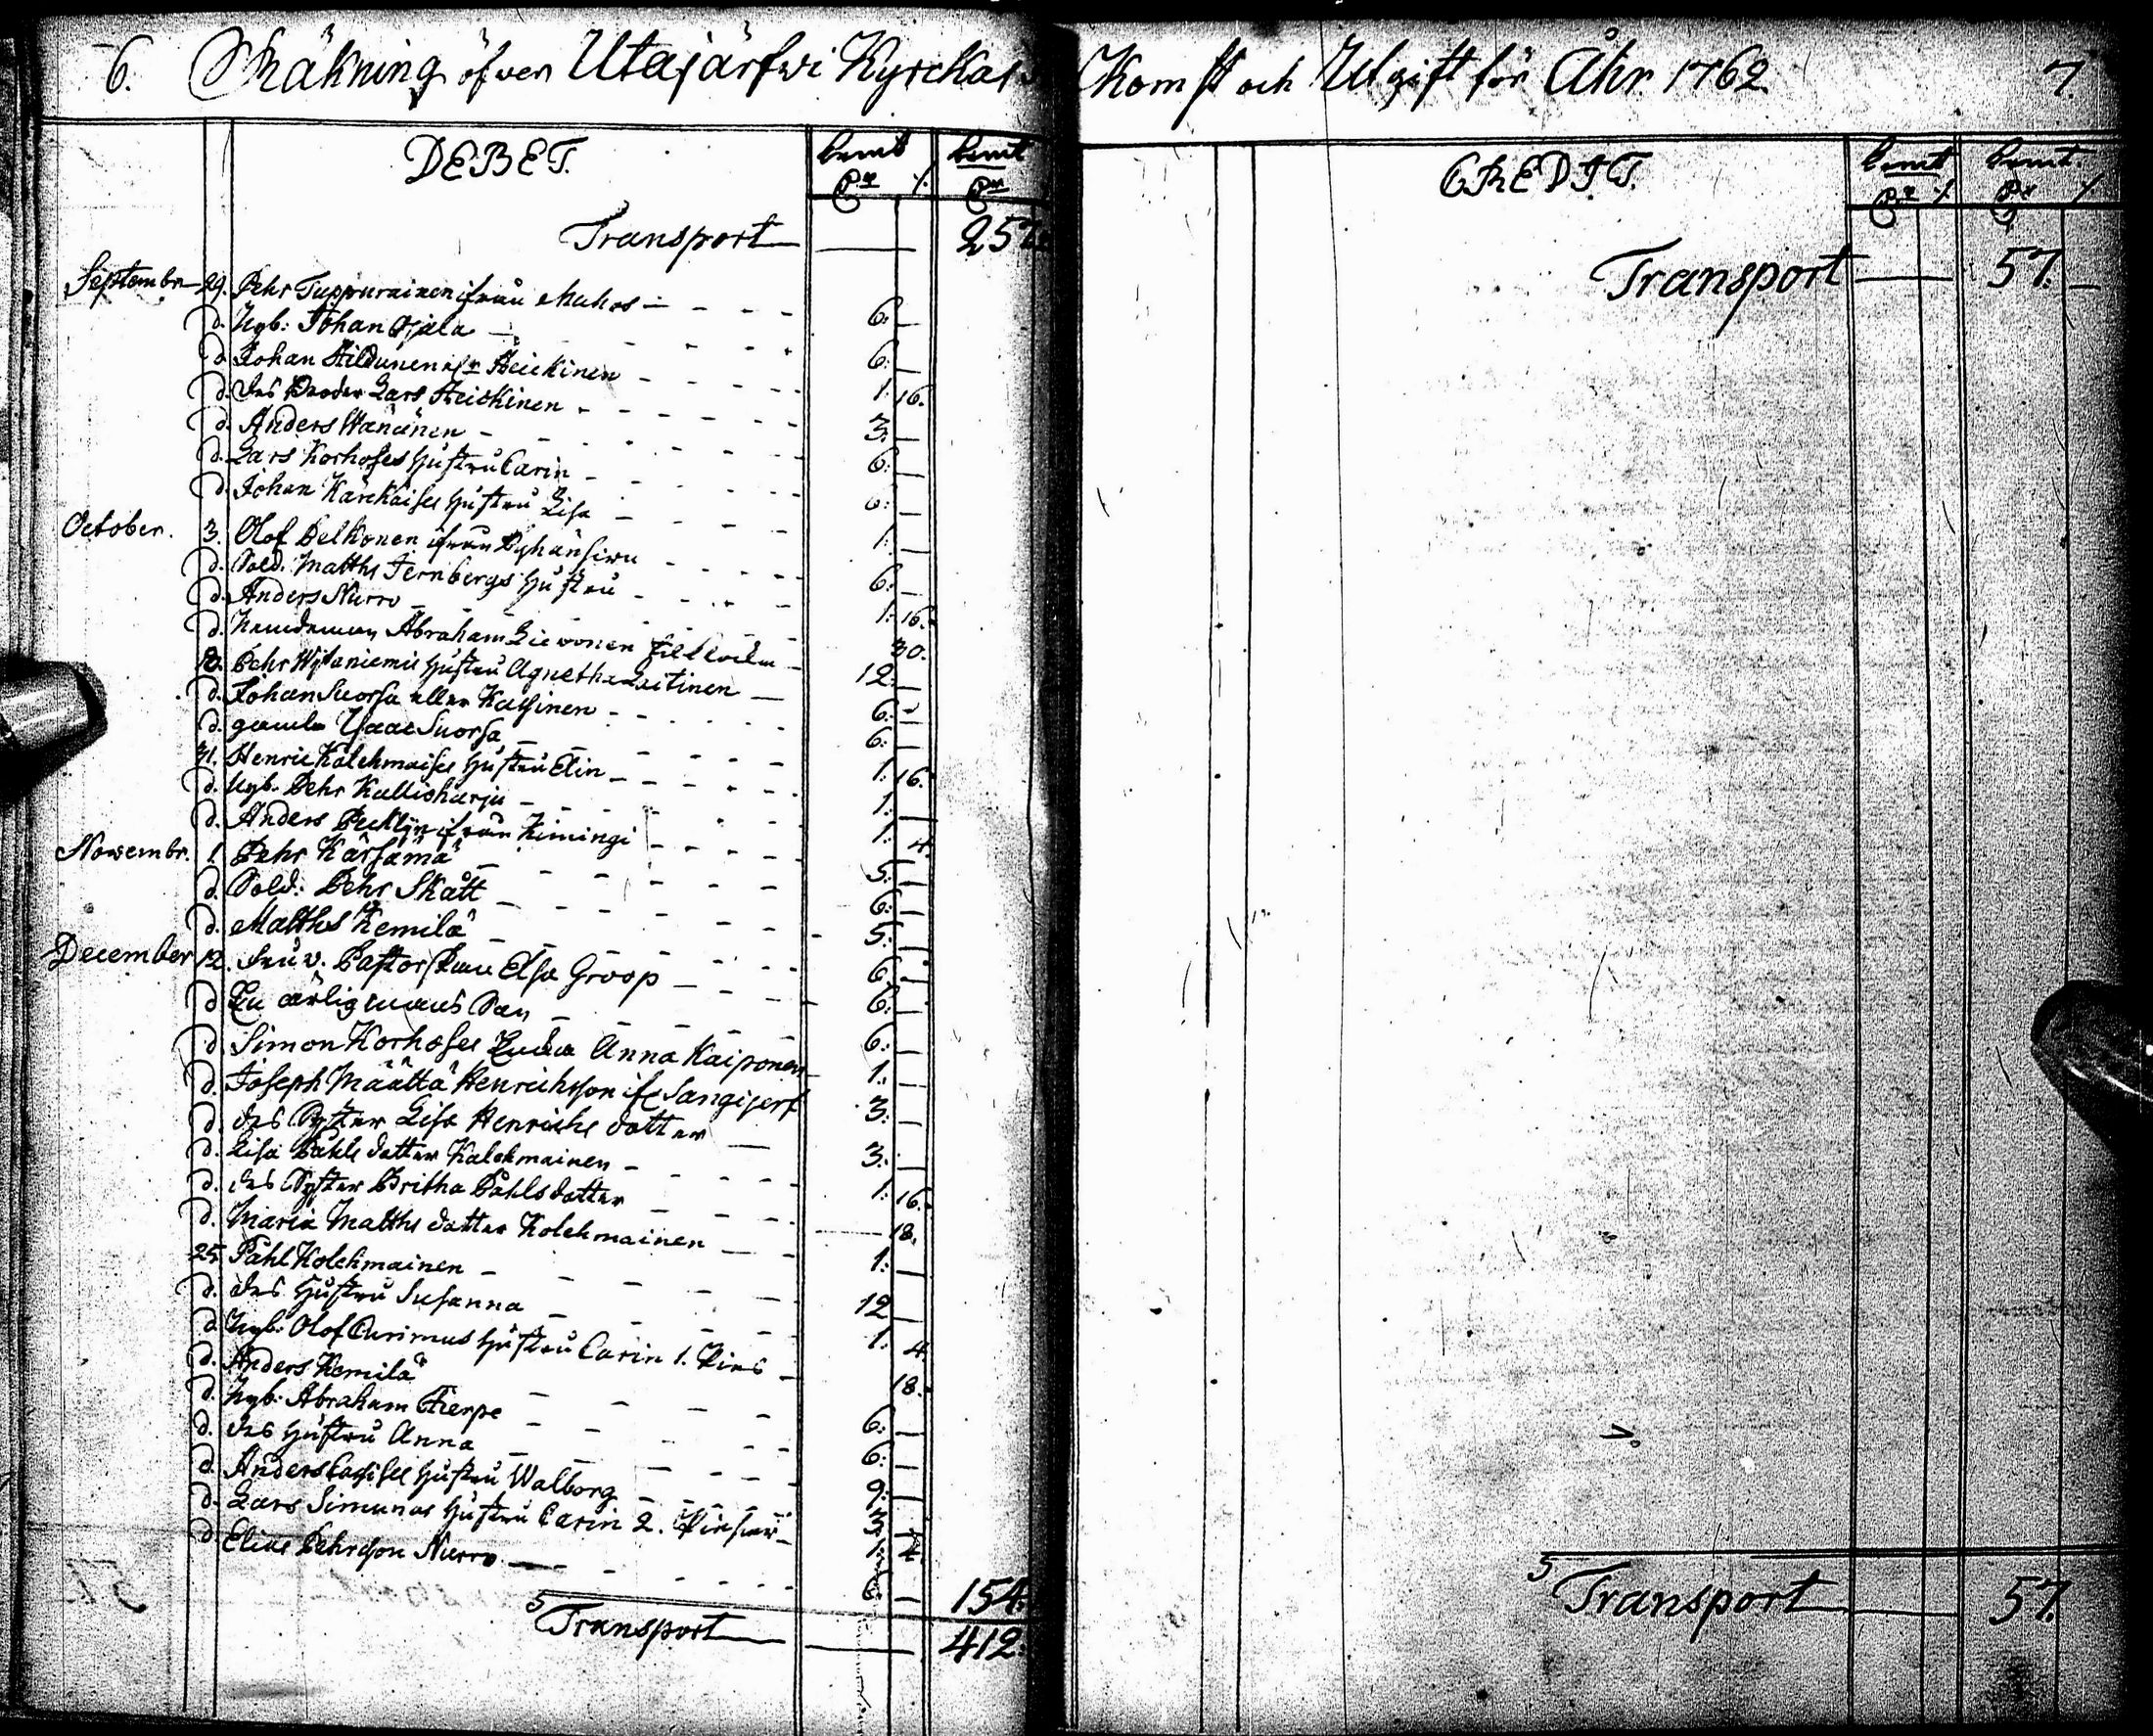 6. Räkning öfwer Utajärfwi Kyrckas
DEBET. kmt kmt
Transport — 257
Septembr 29. Pehr Tuppurainen ifrån Muhos 6. —
d. Nyb: Johan Ojala 6. —
d. Johan Hildunen Heickinen 1. 16.
d. des Broder Lars Heickinen 3. —
d. Anders Wänänen 6. —
d. Lars Korhoses Hustru Carin 6. —
d. Johan Kärckäises Hustru Lisa 1. —
October. 3. Olof Pelkonen ifrån Pyhänsiwu 6. —
d. Sold. Matths Jernbergs Hustru 1. 16.
d. Anders Nurro 30.
d. Abraham Liewonen 12. —
Pehr Hustru Agnetha Laitinen 6. —
d. Johan Suorsa eller Kassinen 6. —
d. gamla Isaac Suorsa 1. 16.
31. Henric Kålehmaises Hustru Elin 1. —
d. Nyb. Pehr Kallioharju 1. 4.
d. Anders ifrån Kimingi 5. —
Novembr. 1. Pehr Kärsämä 6. —
d. Sold: Pehr Skått 5. —
d. Matths Kemilä 6. —
December 12. Fru v. Pastorskan Elsa Groop 6. —
d. En ärlig mans Son 6. —
d. Simon Korhoses Enka Anna Kaiponen 1. —
d. Joseph Määttä Henrichsson Sangijerf 3. —
d. des Syster Lisa Henrichs dotter 3. —
d. Lisa Påhls dotter Kålehmainen 1. 16.
d. des Syster Britha Påhlsdotter 18.
d. Maria Matths dotter Kolehmainen 1. —
25. Påhl Kolehmainen 12 —
d. des Hustru Susanna 1. 4.
d. Nyb: Olof Hustru Carin 1. 18.
d. Anders Kemilä 6. —
d. Nyb: Abraham Tierpe 6. —
d. des Hustru Anna 9. —
d. Anders Hustru Walborg 3. —
d. Lars Simunas Hustru Carin 2.
d. Elias Pehrsson Nurro 6. — 154.
Transport — 412.
Komst och Utgift för Åhr 1762 7.
CREDIT. kmt kmt.
Transport — 57. —
Transport — 57.